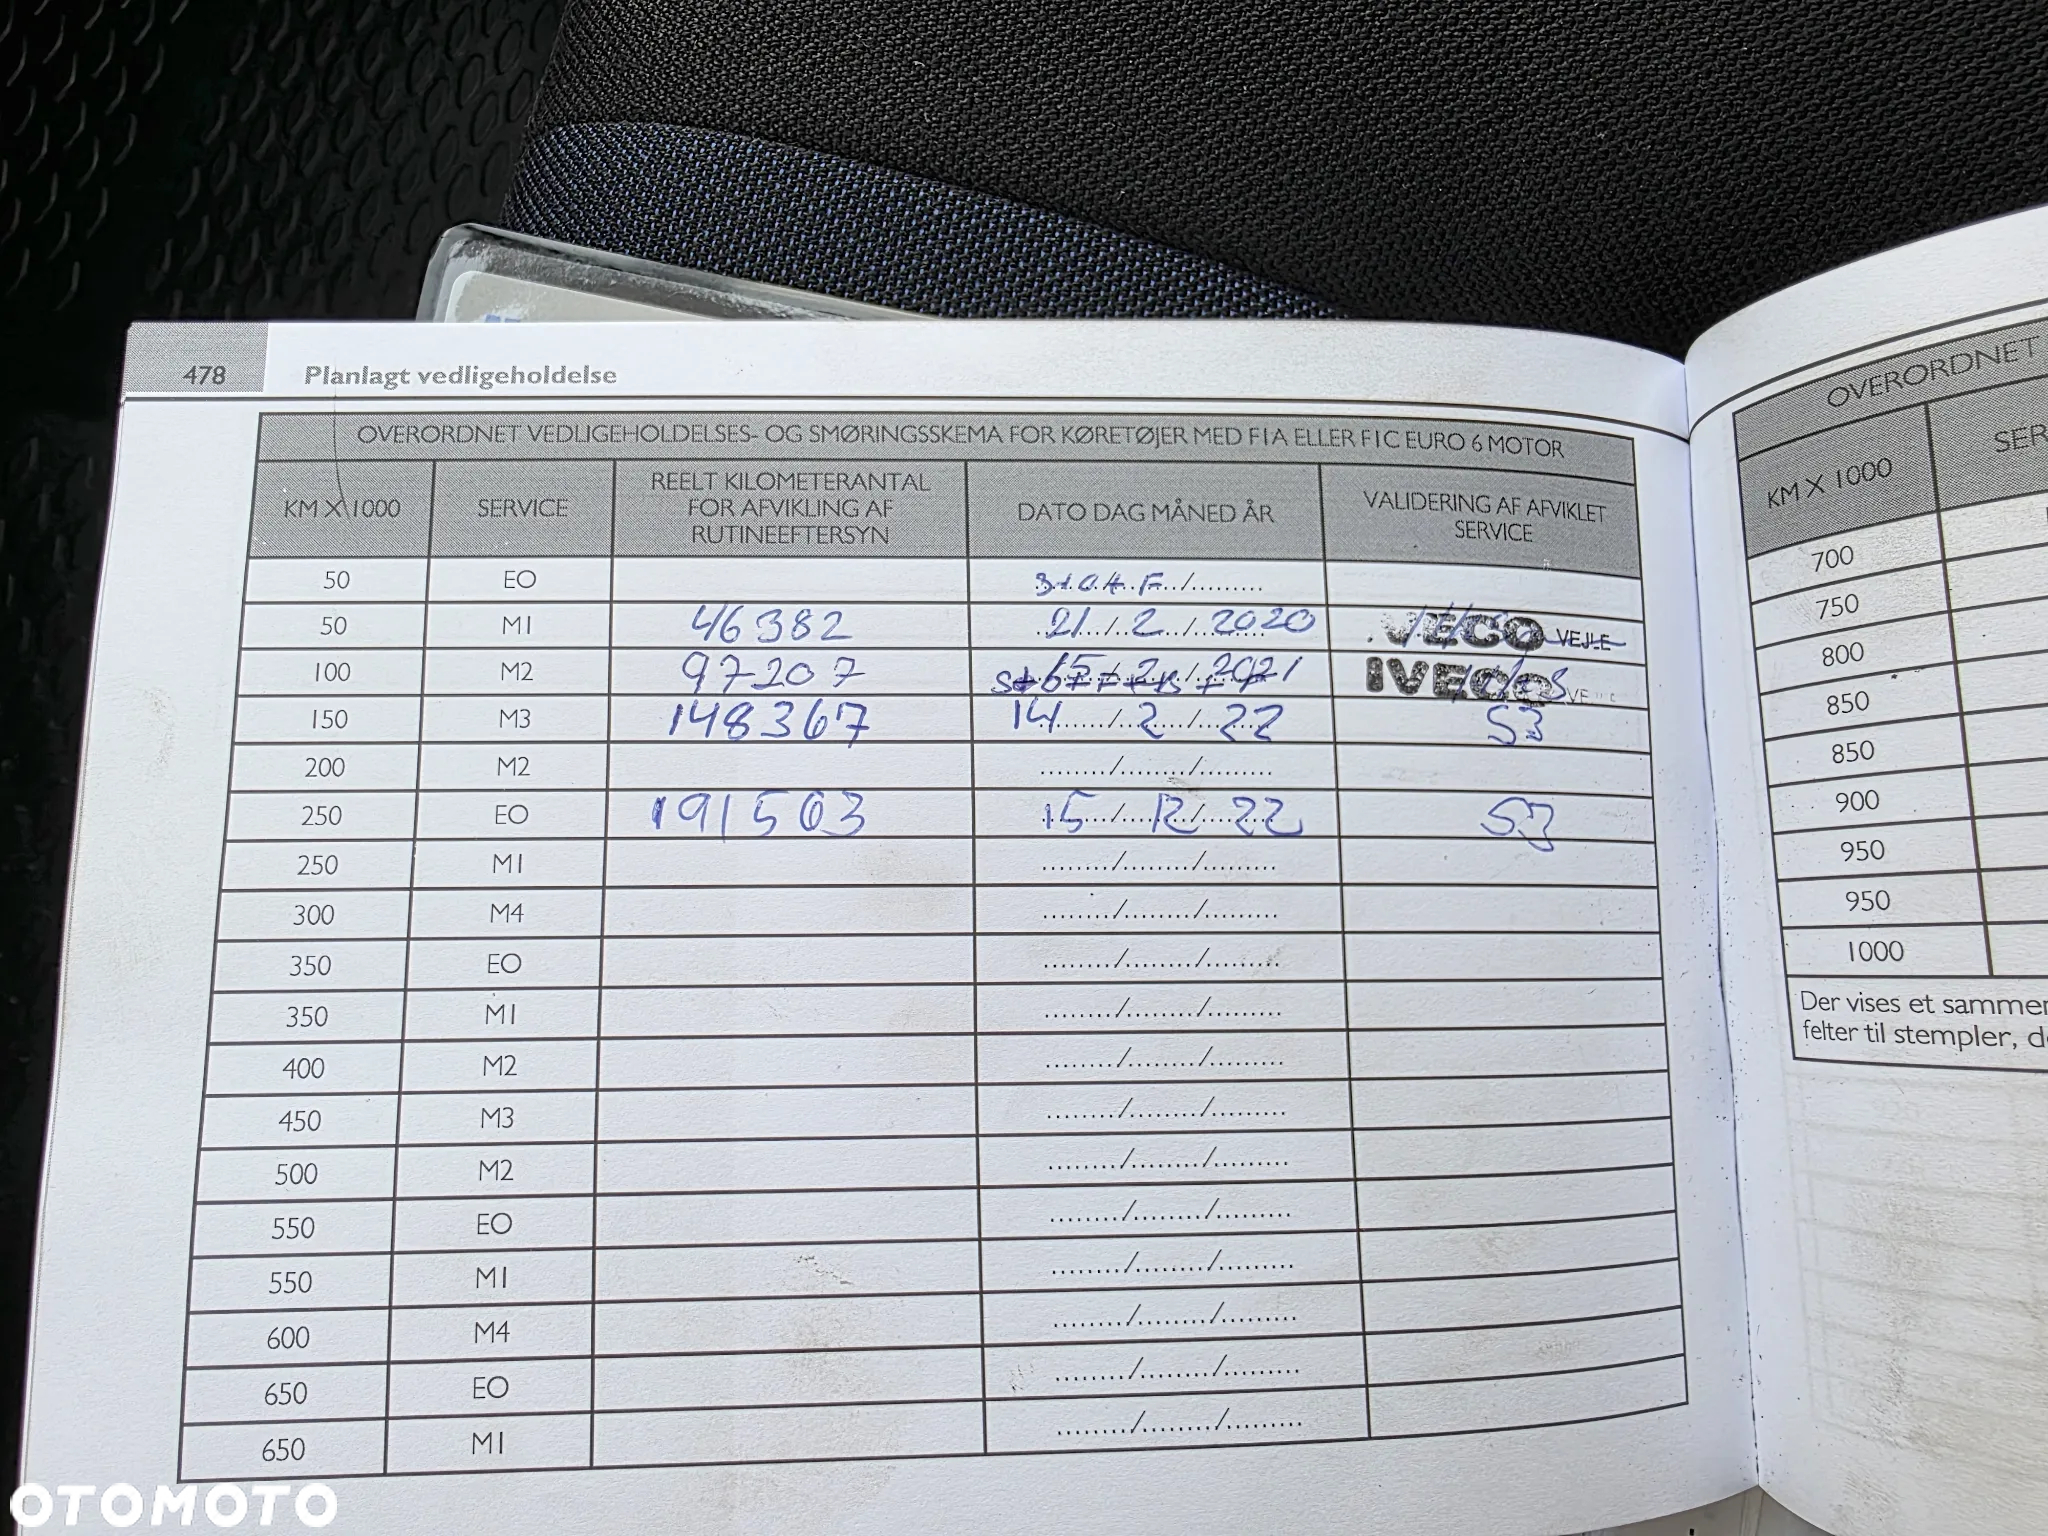 478 Planlagt vedligeholdelse
OVERORDNET VEDLIGEHOLDELSES- OG SMØRINGSSKEMA FOR KØRETØJER MED F1A ELLER F1C EURO 6 MOTOR
KM X 1000 SERVICE REELT KILOMETERANTAL FOR AFVIKLING AF RUTINEEFTERSYN DATO DAG MÅNED ÅR VALIDERING AF AFVIKLET SERVICE
50 EO
50 M1 46382 21/2/2020 IVECO VEJLE
100 M2 97207 15/2/2021 IVECO
150 M3 148367 14/2/22 S3
200 M2 ......../......../.........
250 EO 191503 15/12/22 S3
250 M1 ......../......../.........
300 M4 ......../......../.........
350 EO ......../......../.........
350 M1 ......../......../.........
400 M2 ......../......../.........
450 M3 ......../......../.........
500 M2 ......../......../.........
550 EO ......../......../.........
550 M1 ......../......../.........
600 M4 ......../......../.........
650 EO ......../......../.........
650 M1 ......../......../.........
OVERORDNET
KM X 1000 SER
700
750
800
850
850
900
950
950
1000
Der vises et sammen
felter til stempler, de
OTOMOTO